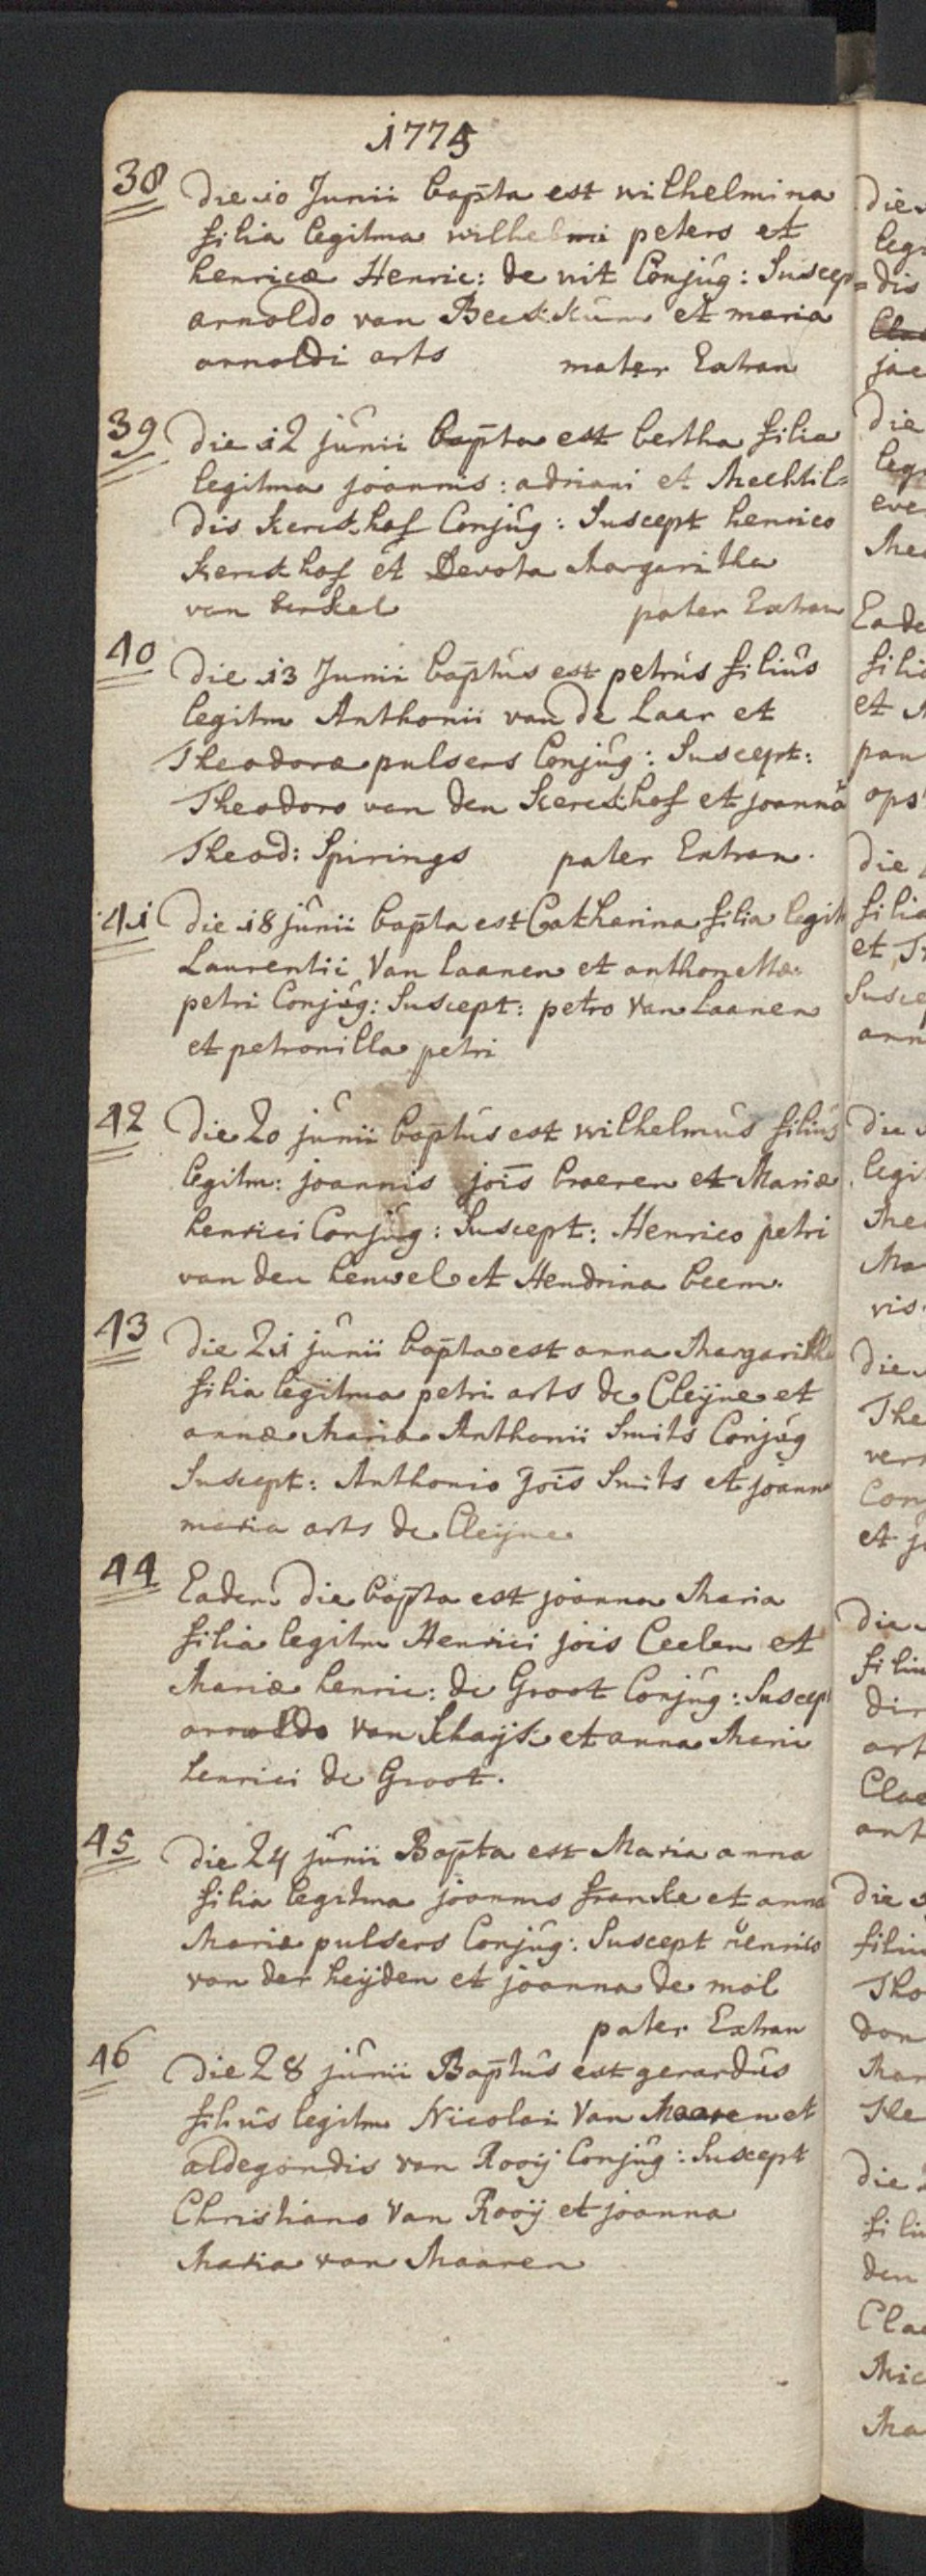 1775
38
die 10 Junii bapta est wilhelmina
filia legitma wilhelmi peters et
henricæ Henric: de wit Conjug: Suscep=
arnoldo van Beeckum et maria
arnoldi arts mater Extran
39
die 12 junii bapta est bertha filia
legitma joannis: adriani et Mechtil=
dis Kerckhof Conjug: Suscept henrico
Kerckhof et Devota Margaritha
van berkel pater Extran
40
die 13 Junii baptus est petrus filius
legitm Anthonii van de Laar et
Theodoræ pulsers Conjug: Suscept:
Theodoro van den Kerckhof et joanna
Theod: Spirings pater Extran.
41
die 18 junii bapta est Catharina filia legit
Laurentii Van laanen et anthonettæ
petri Conjug: Suscept: petro Van Laanen
et petronilla petri
42
die 20 junii baptus est wilhelmus filius
legitm: joannis jois broeren et Mariæ
henrici Conjug: Suscept: Henrico petri
van den heuvel et Hendrina beem.
43
die 21 junii bapta est anna Margaritha
filia legitma petri arts de Cleijne et
annæ Maria Anthonii Smits Conjug
Suscept: Anthonio jois Smits et joanna
maria arts de Cleijne
44
Eadem die bapta est joanna Maria
filia legitm Henrici jois Ceelen et
Mariæ henric: de Groot Conjug: Suscept
arnoldo Van Schaijk et anna Mari
henrici de Groot.
45
die 24 junii Bapta est Maria anna
filia legitma joannis franke et anna
Mariæ pulsers Conjug: Suscept henrico
van der heijden et joanna de mol
pater Extran
46
die 28 junii Baptus est gerardus
filius legitm Nicolai Van Maaren et
aldegondis van Rooij Conjug: Suscept
Christiano Van Rooij et joanna
Maria van Maaren